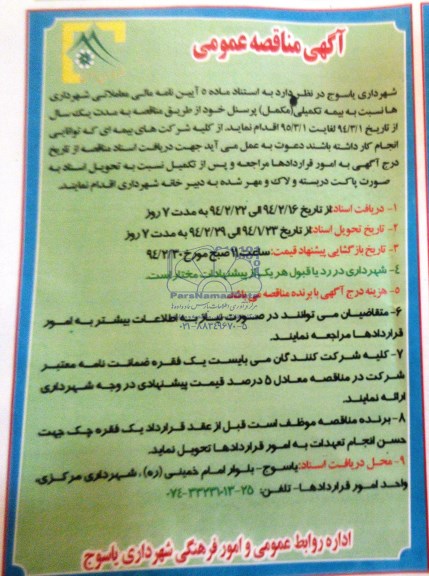 آگهی مناقصه عمومی
شهرداری یاسوج در نظر دارد به استناد ماده ۵ آیین نامه مالی معاملاتی شهرداری
ها نسبت به بیمه تکمیلی (مکمل) پرسنل خود از طریق مناقصه به مدت یک سال
از تاریخ ۹۴/۳/۱ لغایت ۹۵/۳/۱ اقدام نماید. از کلیه شرکت های بیمه ای که توانایی
انجام کار داشته باشند دعوت به عمل می آید جهت دریافت اسناد مناقصه از تاریخ
درج آگهی به امور قراردادها مراجعه و پس از تکمیل نسبت به تحویل اسناد به
صورت پاکت دربسته و لاک و مهر شده به دبیر خانه شهرداری اقدام نمایند.
۱- دریافت اسناد: از تاریخ ۹۴/۲/۱۶ الی ۹۴/۲/۲۲ به مدت ۷ روز
۲- تاریخ تحویل اسناد: از تاریخ ۹۴/۱/۲۳ الی ۹۴/۲/۲۹ به مدت ۷ روز
۳- تاریخ بازگشایی پیشنهاد قیمت: ساعت ۱۱ صبح مورخ ۹۴/۲/۳۰
۴- شهرداری در رد یا قبول هر یک از پیشنهادات مختار است.
۵- هزینه درج آگهی با برنده مناقصه می باشد.
ParsNamadData
۰۲۱-۸۸۳۴۹۶۷۰-۵
۶- متقاضیان می توانند در صورت نیاز به اطلاعات بیشتر به امور
قراردادها مراجعه نمایند.
۷- کلیه شرکت کنندگان می بایست یک فقره ضمانت نامه معتبر
شرکت در مناقصه معادل ۵ درصد قیمت پیشنهادی در وجه شهرداری
ارائه نمایند.
۸- برنده مناقصه موظف است قبل از عقد قرارداد یک فقره چک جهت
حسن انجام تعهدات به امور قراردادها تحویل نماید.
۹- محل دریافت اسناد: یاسوج- بلوار امام خمینی (ره)، شهرداری مرکزی،
واحد امور قراردادها- تلفن: ۲۵-۱۳-۳۳۲۳۱۰-۰۷۴
اداره روابط عمومی و امور فرهنگی شهرداری یاسوج